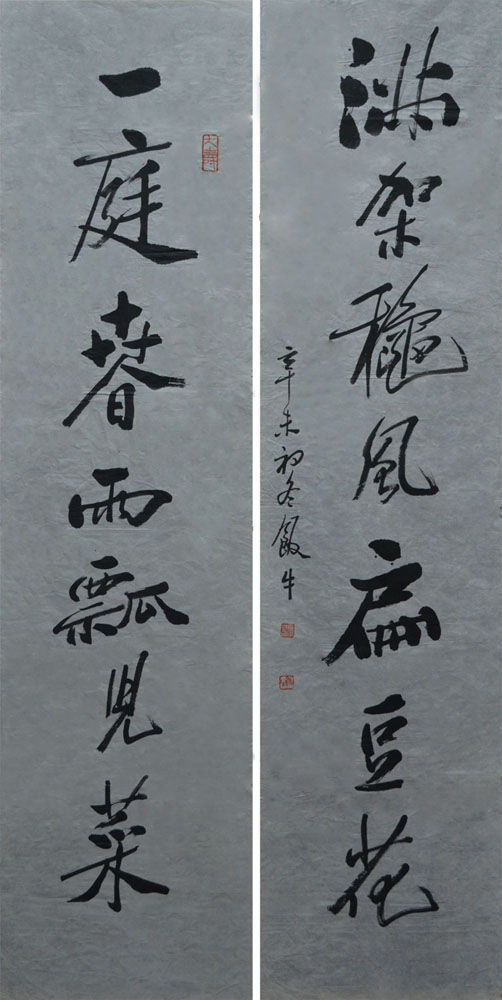 一庭春雨瓢兒菜
滿架龝風扁豆花
辛未初冬飯牛